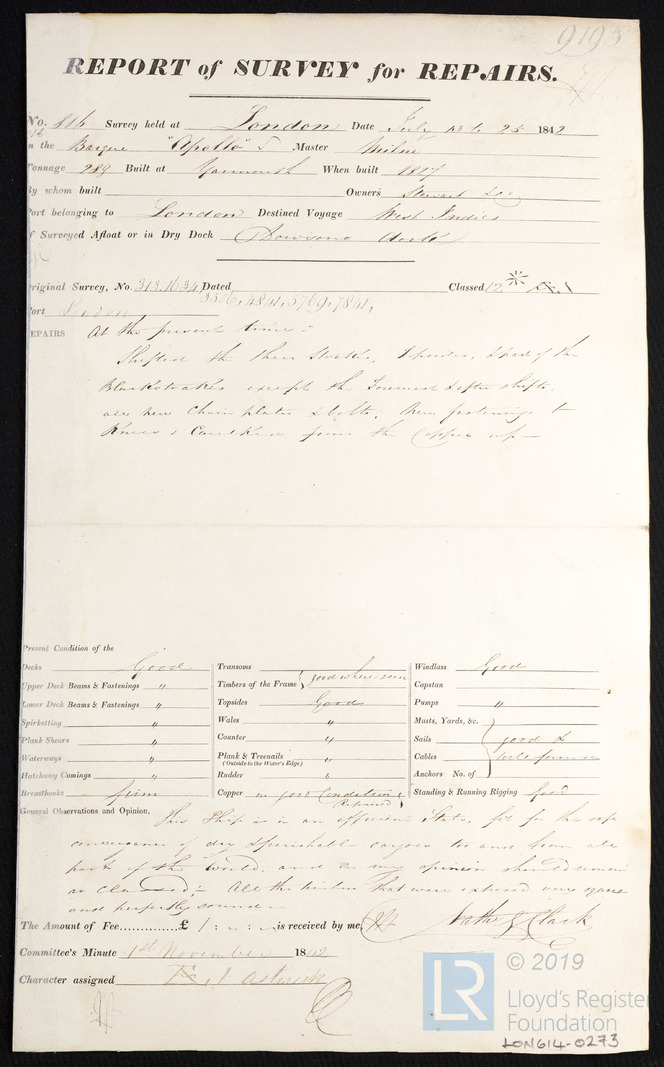 9193
REPORT of SURVEY for REPAIRS.
No. 816 Survey held at London Date July 13 to 25 1842
n the Barque "Apollo" Master Milne
Tonnage 289 Built at Yarmouth When built 1817
By whom built Owners Stewart & Co
Port belonging to London Destined Voyage West Indies
f Surveyed Afloat or in Dry Dock Dowsons Dock
Original Survey, No. 313.1634, Dated Classed 12
3376, 4841, 5769, 7841,
Port London
REPAIRS At the present time
Shifted the Sheer Strakes, & part of the
Blackstrakes except the Foremost & after shifts,
all new Chain plates & bolts, New fastenings to
Knees & Caulked from the Copper up
Present Condition of the
Decks Good Transoms Windlass Good
Upper Deck Beams & Fastenings " Timbers of the Frame { good where seen Capstan
Lower Deck Beams & Fastenings " Topsides Good Pumps "
Spirketting " Wales " Masts, Yards, &c.
Plank Shears " Counter " Sails good &
Waterways " Plank & Treenails " Cables
(Outside to the Water's Edge)
Hatchway Comings " Rudder " Anchors No. of
Breasthooks firm Copper in good Condition & Standing & Running Rigging good
Repaired
General Observations and Opinion, This Ship is in an efficient State, fit for the safe
conveyance of dry & perishable cargoes to and from all
parts of the World, and in my opinion should remain
as Classed; All the timbers that were exposed were square
and perfectly sound
The Amount of Fee..............£ 1 : " : " is received by me,
Clark
Committee's Minute 1st November 1842
Character assigned Asterisk
© 2019
LR
Lloyd's Register
Foundation
LON614-0273